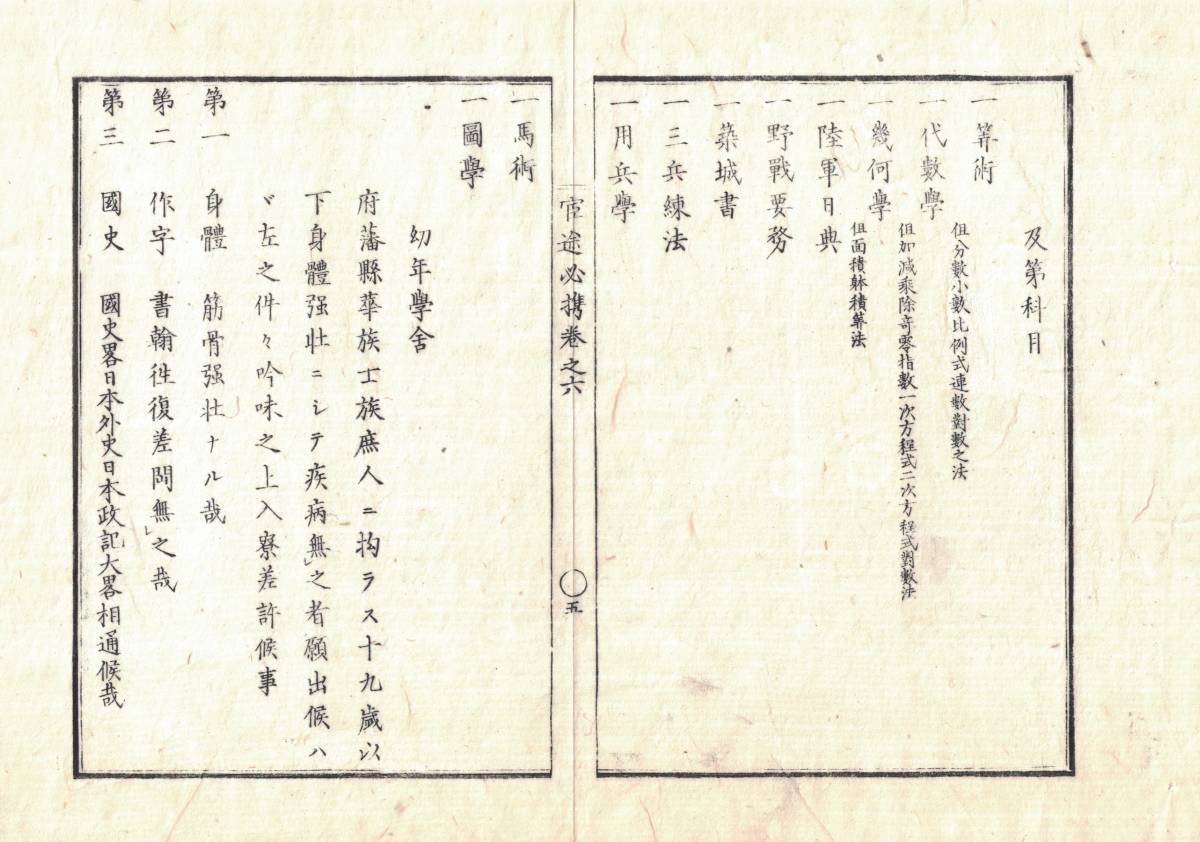 及第科目
一 算術
但分數小數比例式連數對數之法
一 代數學
但加減乘除奇零指數一次方程式二次方程式對數法
一 幾何學
但面積躰積算法
一 陸軍日典
一 野戰要務
一 築城書
一 三兵練法
一 用兵學
官途必携卷之六
〇五
一 馬術
一 圖學
幼年學舍
府藩縣華族士族庶人ニ拘ラス十九歲以
下身體强壯ニシテ疾病無㆑之者願出候ハ
ヾ左之件々吟味之上入寮差許候事
第一 身體 筋骨强壯ナル哉
第二 作字 書翰徃復差閊無㆑之哉
第三 國史 國史畧日本外史日本政記大畧相通候哉